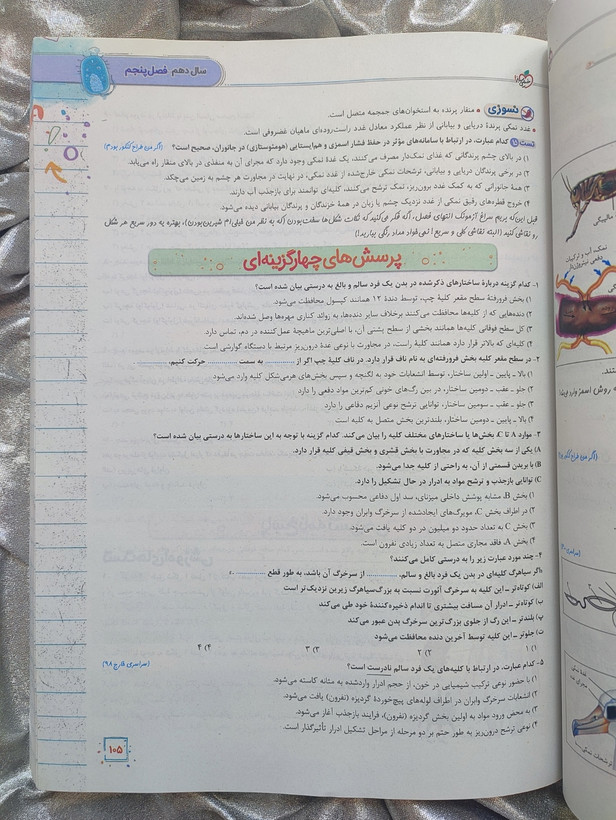 سال دهم فصل پنجم
نسوزی • منقار پرنده، به استخوان‌های جمجمه متصل است.
• غدد نمکی پرندهٔ دریایی و بیابانی از نظر عملکرد معادل غدد راست‌روده‌ای ماهیان غضروفی است.
تست کدام عبارت، در ارتباط با سامانه‌های مؤثر در حفظ فشار اسمزی و هم‌ایستایی (هومئوستازی) در جانوران، صحیح است؟ (اگر من طراح کنکور بودم)
۱) در بالای چشم پرندگانی که غذای نمک‌دار مصرف می‌کنند، یک غدهٔ نمکی وجود دارد که مجرای آن به منفذی در بالای منقار راه می‌یابد.
۲) در برخی پرندگان دریایی و بیابانی، ترشحات نمکی خارج‌شده از غدد نمکی، در نهایت در مجاورت هر چشم به زمین می‌چکد.
۳) همهٔ جانورانی که به کمک غدد برون‌ریز، نمک ترشح می‌کنند، کلیه‌ای توانمند برای بازجذب آب دارند.
۴) خروج قطره‌های رقیق نمکی از غدد نزدیک چشم یا زبان در همهٔ خزندگان و پرندگان بیابانی دیده می‌شود.
قبل این‌که بریم سراغ آزمونک انتهای فصل، اگه فکر می‌کنید که نکات شکل‌ها سخت‌بودن (که به نظر من خیلی‌ام شیرین‌بودن)، بهتره یه دور سریع هر شکل
رو نقاشی کنید (البته نقاشی کلی و سریع! نمی‌خواد مداد رنگی بیارید!)
پرسش‌های چهارگزینه‌ای
۱- کدام گزینه دربارهٔ ساختارهای ذکرشده در بدن یک فرد سالم و بالغ به درستی بیان شده است؟
۱) بخش فرورفتهٔ سطح مقعر کلیهٔ چپ، توسط دندهٔ ۱۲ همانند کپسول محافظت می‌شود.
۲) دنده‌هایی که از کلیه‌ها محافظت می‌کنند برخلاف سایر دنده‌ها، به زوائد کناری مهره‌ها وصل شده‌اند.
۳) کل سطح فوقانی کلیه‌ها همانند بخشی از سطح پشتی آن، با اصلی‌ترین ماهیچهٔ عمل‌کننده در دم، تماس دارد.
۴) کلیه‌ای که بالاتر قرار دارد همانند کلیهٔ راست، در مجاورت با نوعی غدهٔ درون‌ریز مرتبط با دستگاه گوارشی است.
۲- در سطح مقعر کلیه بخش فرورفته‌ای به نام ناف قرار دارد. در ناف کلیهٔ چپ اگر از ............ به سمت ............ حرکت کنیم، ............
۱) بالا - پایین - اولین ساختار، توسط انشعابات خود به لگنچه و سپس بخش‌های هرمی‌شکل کلیه وارد می‌شود
۲) جلو - عقب - دومین ساختار، در بین رگ‌های خونی کم‌ترین مواد دفعی را دارد
۳) جلو - عقب - سومین ساختار، توانایی ترشح نوعی آنزیم دفاعی را دارد
۴) بالا - پایین - دومین ساختار، بلندترین بخش متصل به کلیه است
۳- موارد A تا C، بخش‌ها یا ساختارهای مختلف کلیه را بیان می‌کند. کدام گزینه با توجه به این ساختارها به درستی بیان شده است؟
A) یکی از سه بخش کلیه که در مجاورت با بخش قشری و بخش قیفی کلیه قرار دارد.
B) با بریدن قسمتی از آن، به راحتی از کلیه جدا می‌شود.
C) توانایی بازجذب و ترشح مواد به ادرار در حال تشکیل را دارد.
۱) بخش B، مشابه پوشش داخلی میزنای، سد اول دفاعی محسوب می‌شود.
۲) در اطراف بخش C، مویرگ‌های ایجادشده از سرخرگ وابران وجود دارد.
۳) بخش C به تعداد حدود دو میلیون در دو کلیه یافت می‌شود.
۴) بخش A، فاقد مجاری متصل به تعداد زیادی نفرون است.
۴- چند مورد عبارت زیر را به درستی کامل می‌کنند؟
«اگر سیاهرگ کلیه‌ای در بدن یک فرد بالغ و سالم، ............ از سرخرگ آن باشد، به طور قطع ............ »
الف) کوتاه‌تر - این کلیه به سرخرگ آئورت نسبت به بزرگ‌سیاهرگ زیرین نزدیک‌تر است
ب) کوتاه‌تر - ادرار آن مسافت بیشتری تا اندام ذخیره‌کنندهٔ خود طی می‌کند
پ) بلندتر - این رگ از جلوی بزرگ‌ترین سرخرگ بدن عبور می‌کند
ت) جلوتر - این کلیه توسط آخرین دنده محافظت می‌شود
۱) ۱ ۲) ۲ ۳) ۳ ۴) ۴
۵- کدام عبارت، در ارتباط با کلیه‌های یک فرد سالم نادرست است؟ (سراسری خارج ۹۸)
۱) با حضور نوعی ترکیب شیمیایی در خون، از حجم ادرار واردشده به مثانه کاسته می‌شود.
۲) انشعابات سرخرگ وابران در اطراف لوله‌های پیچ‌خوردهٔ گردیزه (نفرون) یافت می‌شود.
۳) به محض ورود مواد به اولین بخش گردیزه (نفرون)، فرایند بازجذب آغاز می‌شود.
۴) نوعی ترشح درون‌ریز به طور حتم بر دو مرحله از مراحل تشکیل ادرار تأثیرگذار است.
۱۰۵